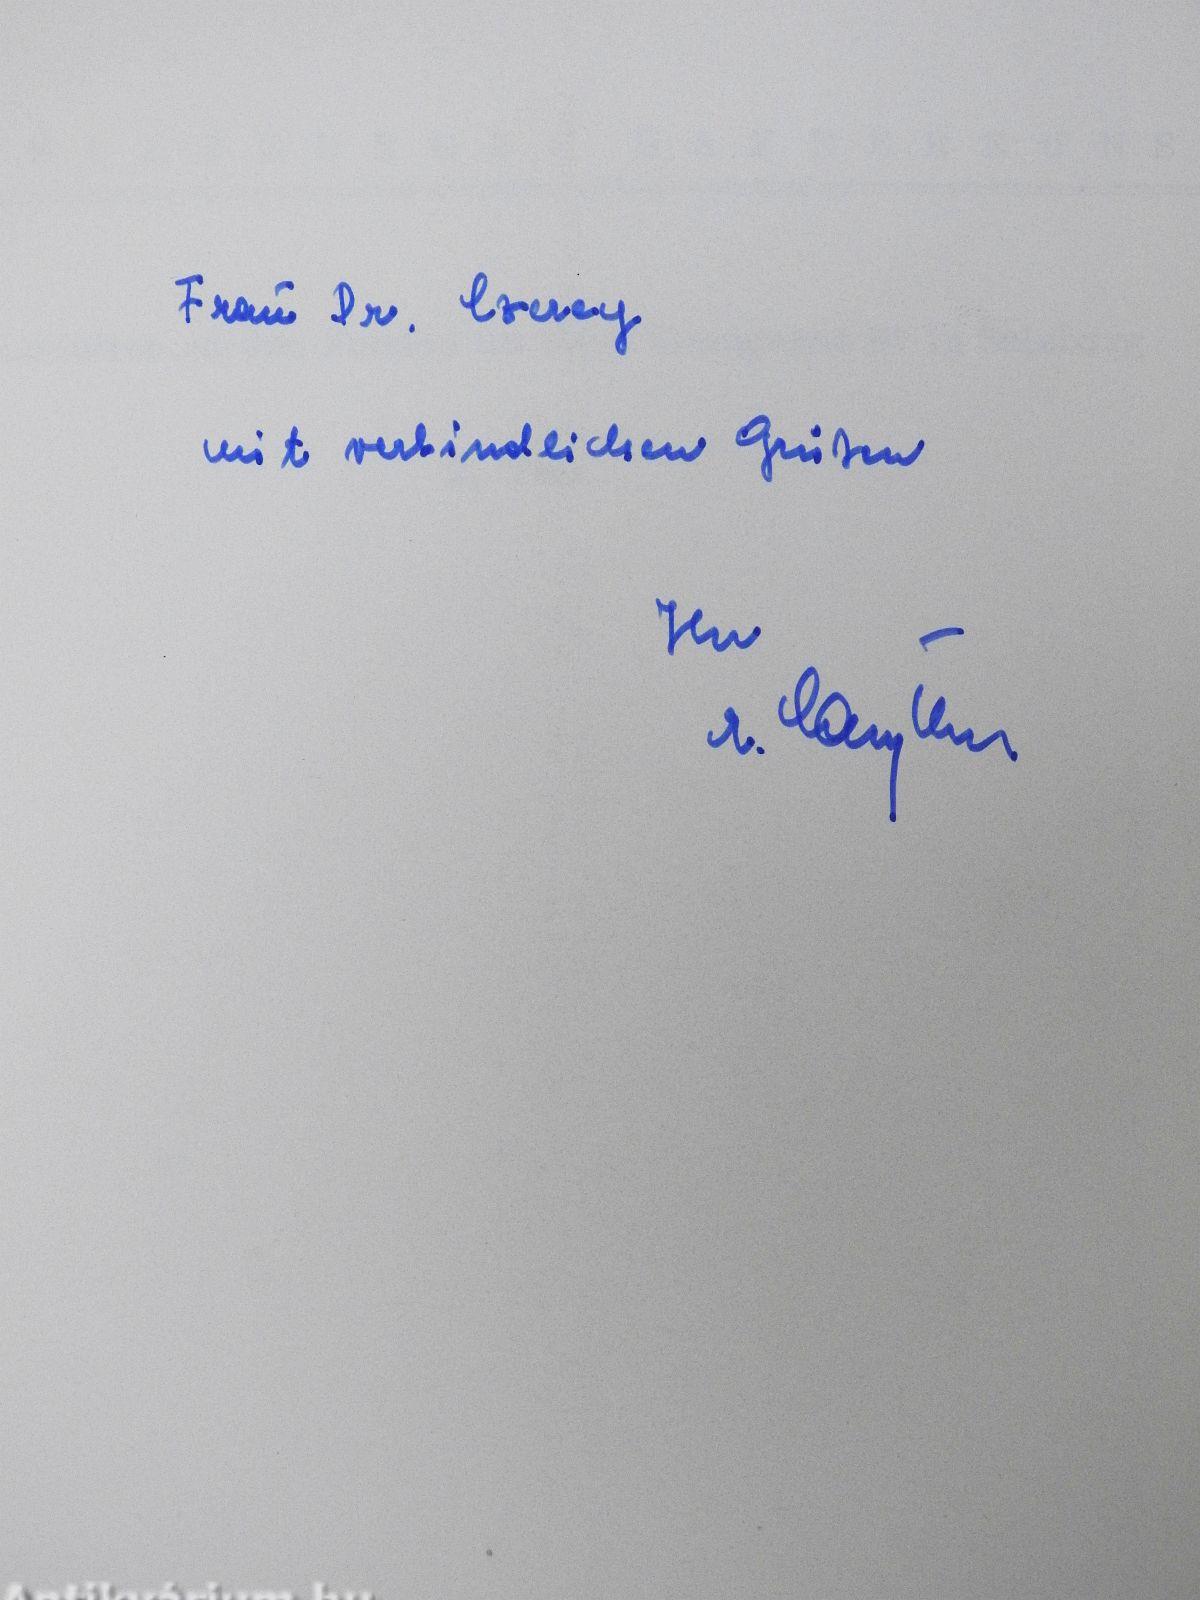 Frau Dr. Cserey
mit verbindlichen Grüßen
Ihr
Antikvárium.hu